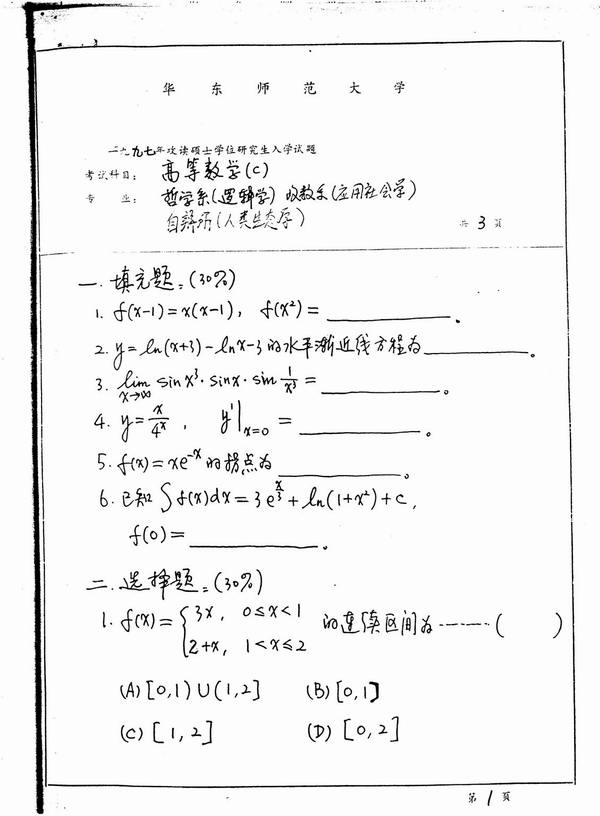 华东师范大学
一九九七年攻读硕士学位研究生入学试题
考试科目: 高等数学(C)
专业: 哲学系(逻辑学) 政教系(应用社会学)
自辩所(人类生态学)
共 3 页
一. 填充题:(30%)
1. f(x-1)=x(x-1), f(x²)= ________.
2. y=ln(x+3)-lnx-3的水平渐近线方程为________.
3. lim x→∞ sin x³·sinx·sin 1/x³ = ________.
4. y=x/4ˣ, y'|x=0 = ________.
5. f(x)=xe⁻ˣ的拐点为________.
6. 已知∫f(x)dx=3e^(x/3)+ln(1+x²)+c,
f(0)=________.
二. 选择题:(30%)
1. f(x)={3x, 0≤x<1
2+x, 1<x≤2 的连续区间为……( )
(A) [0,1)∪(1,2] (B) [0,1]
(C) [1,2] (D) [0,2]
第 1 页